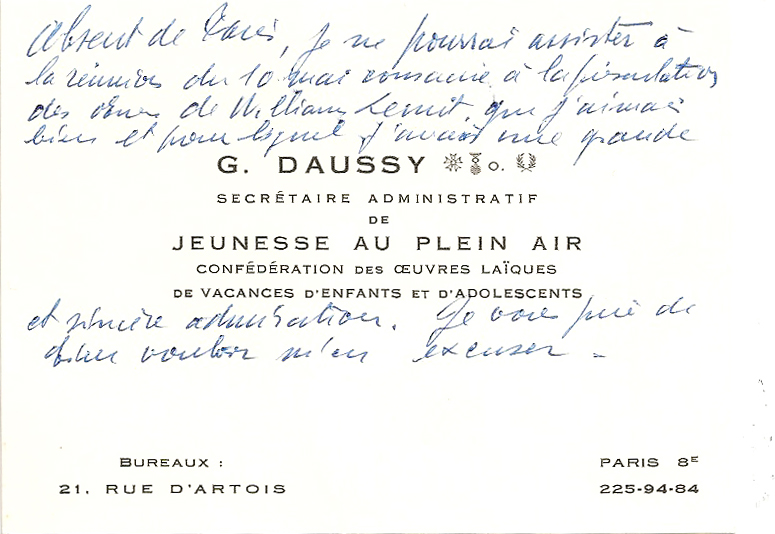 Absent de Paris, je ne pourrai assister à
la réunion du 10 mai consacrée à la présentation
des œuvres de William Lemit, que j'aimais
bien et pour lequel j'avais une grande
G. DAUSSY O.
SECRÉTAIRE ADMINISTRATIF
DE
JEUNESSE AU PLEIN AIR
CONFÉDÉRATION DES ŒUVRES LAÏQUES
DE VACANCES D'ENFANTS ET D'ADOLESCENTS
et sincère admiration. Je vous prie de
bien vouloir m'en excuser -
BUREAUX :
21, RUE D'ARTOIS
PARIS 8E
225-94-84